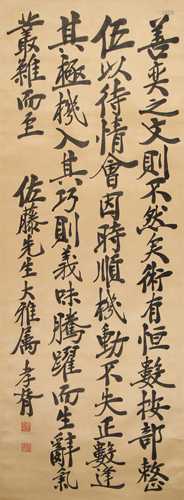 善奕之文則不然矣術有恒數按部整
伍以待情會因時順機動不失正數逢
其極機入其巧則義味騰躍而生辭氣
叢雜而至
佐藤先生大雅屬 孝胥